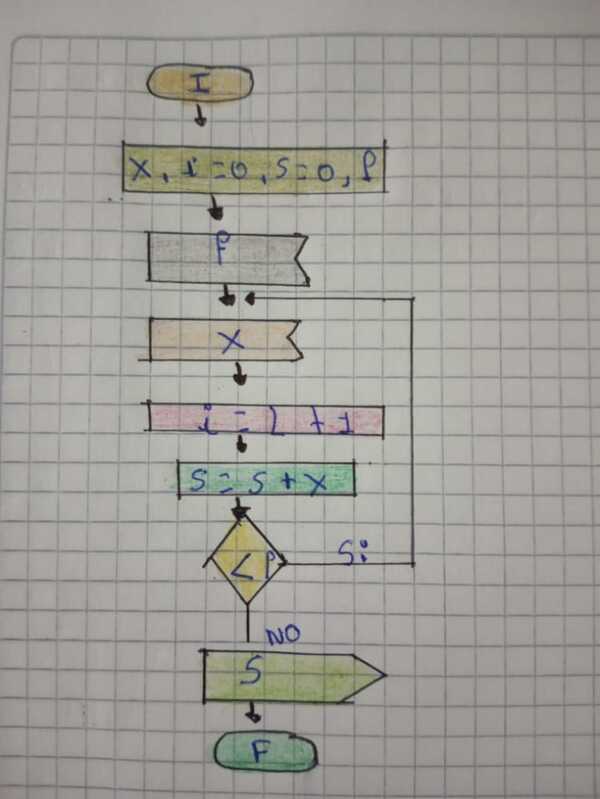 I
X, i=0, S=0, P
P
X
i = i + 1
S = S + X
< P
Si
NO
S
F